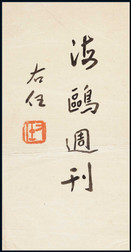 海鷗週刊
右任